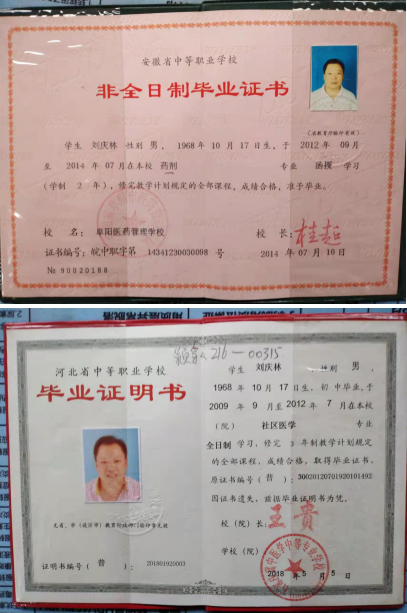 安徽省中等职业学校
非全日制毕业证书
(省教育厅验印有效)
学生 刘庆林 性别 男, 1968年 10月 17日生,于 2012年 09月
至 2014年 07月在本校 药剂 专业 函授 学习
(学制 2 年),修完教学计划规定的全部课程,成绩合格,准予毕业。
校 名: 阜阳医药管理学校
校 长: 桂超
证书编号: 皖中职字第 14341230030098 号
2014年 07月 10日
№ 90020188
冀宁公 216-00315
河北省中等职业学校
毕业证明书
学生 刘庆林 ,性别 男 ,
1968年 10月 17日生,初中毕业,于
2009年 9月至2012年 7月在本校
(院) 社区医学 专业
全日制 学习,修完 3 年制教学计划规定
的全部课程,成绩合格,取得毕业证书,
原证书编号(普): 30020120701920101492
因证书遗失,兹据毕业证明书为凭。
校(院)长: 王贵
学校(院):
2018年 5月 5日
证明书编号(普): 201801920003